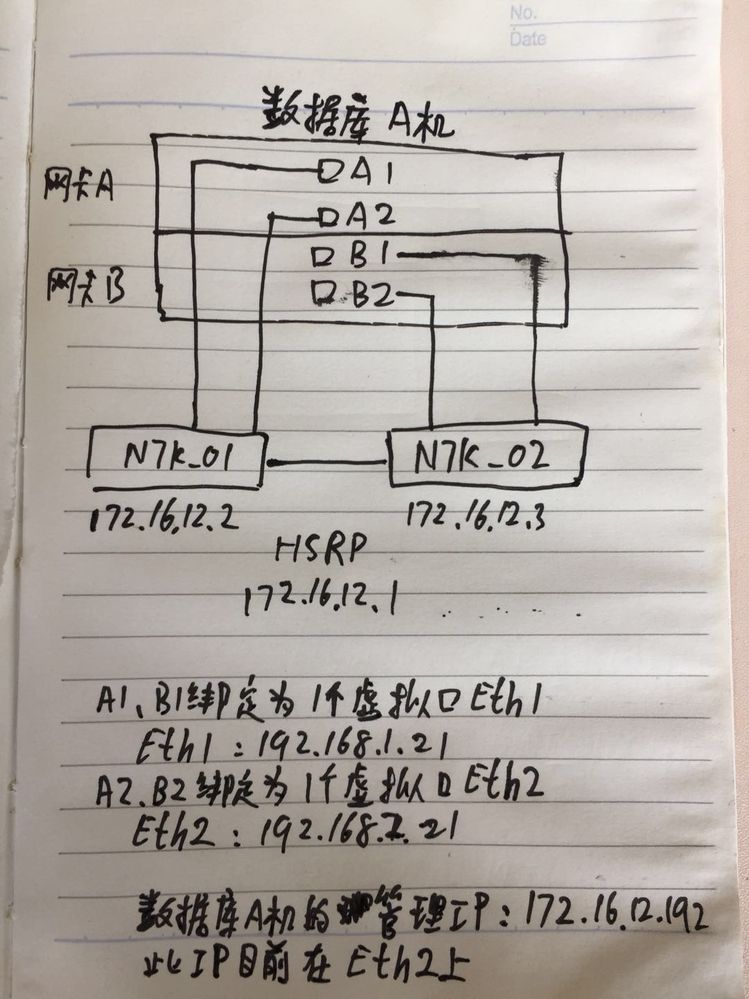 No.
Date
数据库A机
网卡A
A1
A2
网卡B
B1
B2
N7K_01
N7K_02
172.16.12.2
172.16.12.3
HSRP
172.16.12.1
A1、B1绑定为1个虚拟口Eth1
Eth1：192.168.1.21
A2、B2绑定为1个虚拟口Eth2
Eth2：192.168.2.21
数据库A机的管理IP：172.16.12.192
此IP目前在Eth2上